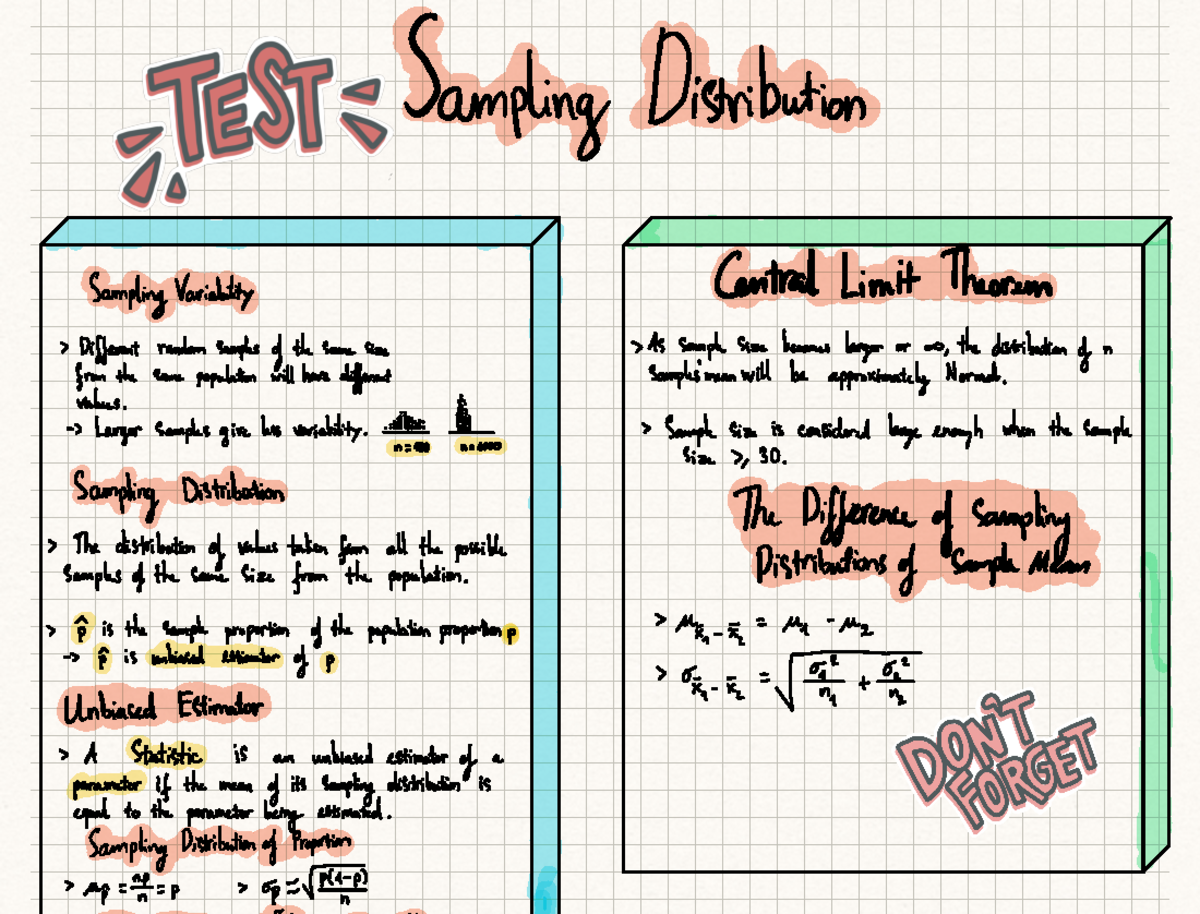 TEST
Sampling Distribution
Sampling Variability
> Different random samples of the same size
from the same population will have different
values.
-> Larger samples give less variability.
n=
n=
Sampling Distribution
> The distribution of values taken from all the possible
samples of the same size from the population.
> p̂ is the sample proportion of the population proportion p
-> p̂ is unbiased estimator of p
Unbiased Estimator
> A Statistic is an unbiased estimator of a
parameter if the mean of its sampling distribution is
equal to the parameter being estimated.
Sampling Distribution of Proportion
> μp = np/n = p > σp = √(p(1-p)/n)
Central Limit Theorem
> As sample size becomes larger or ∞, the distribution of n
samples' mean will be approximately Normal.
> Sample size is considered large enough when the sample
size ≥ 30.
The Difference of Sampling
Distributions of Sample Mean
> μx̄₁ - x̄₂ = μ₁ - μ₂
> σx̄₁ - x̄₂ = √(σ₁²/n₁ + σ₂²/n₂)
DON'T
FORGET